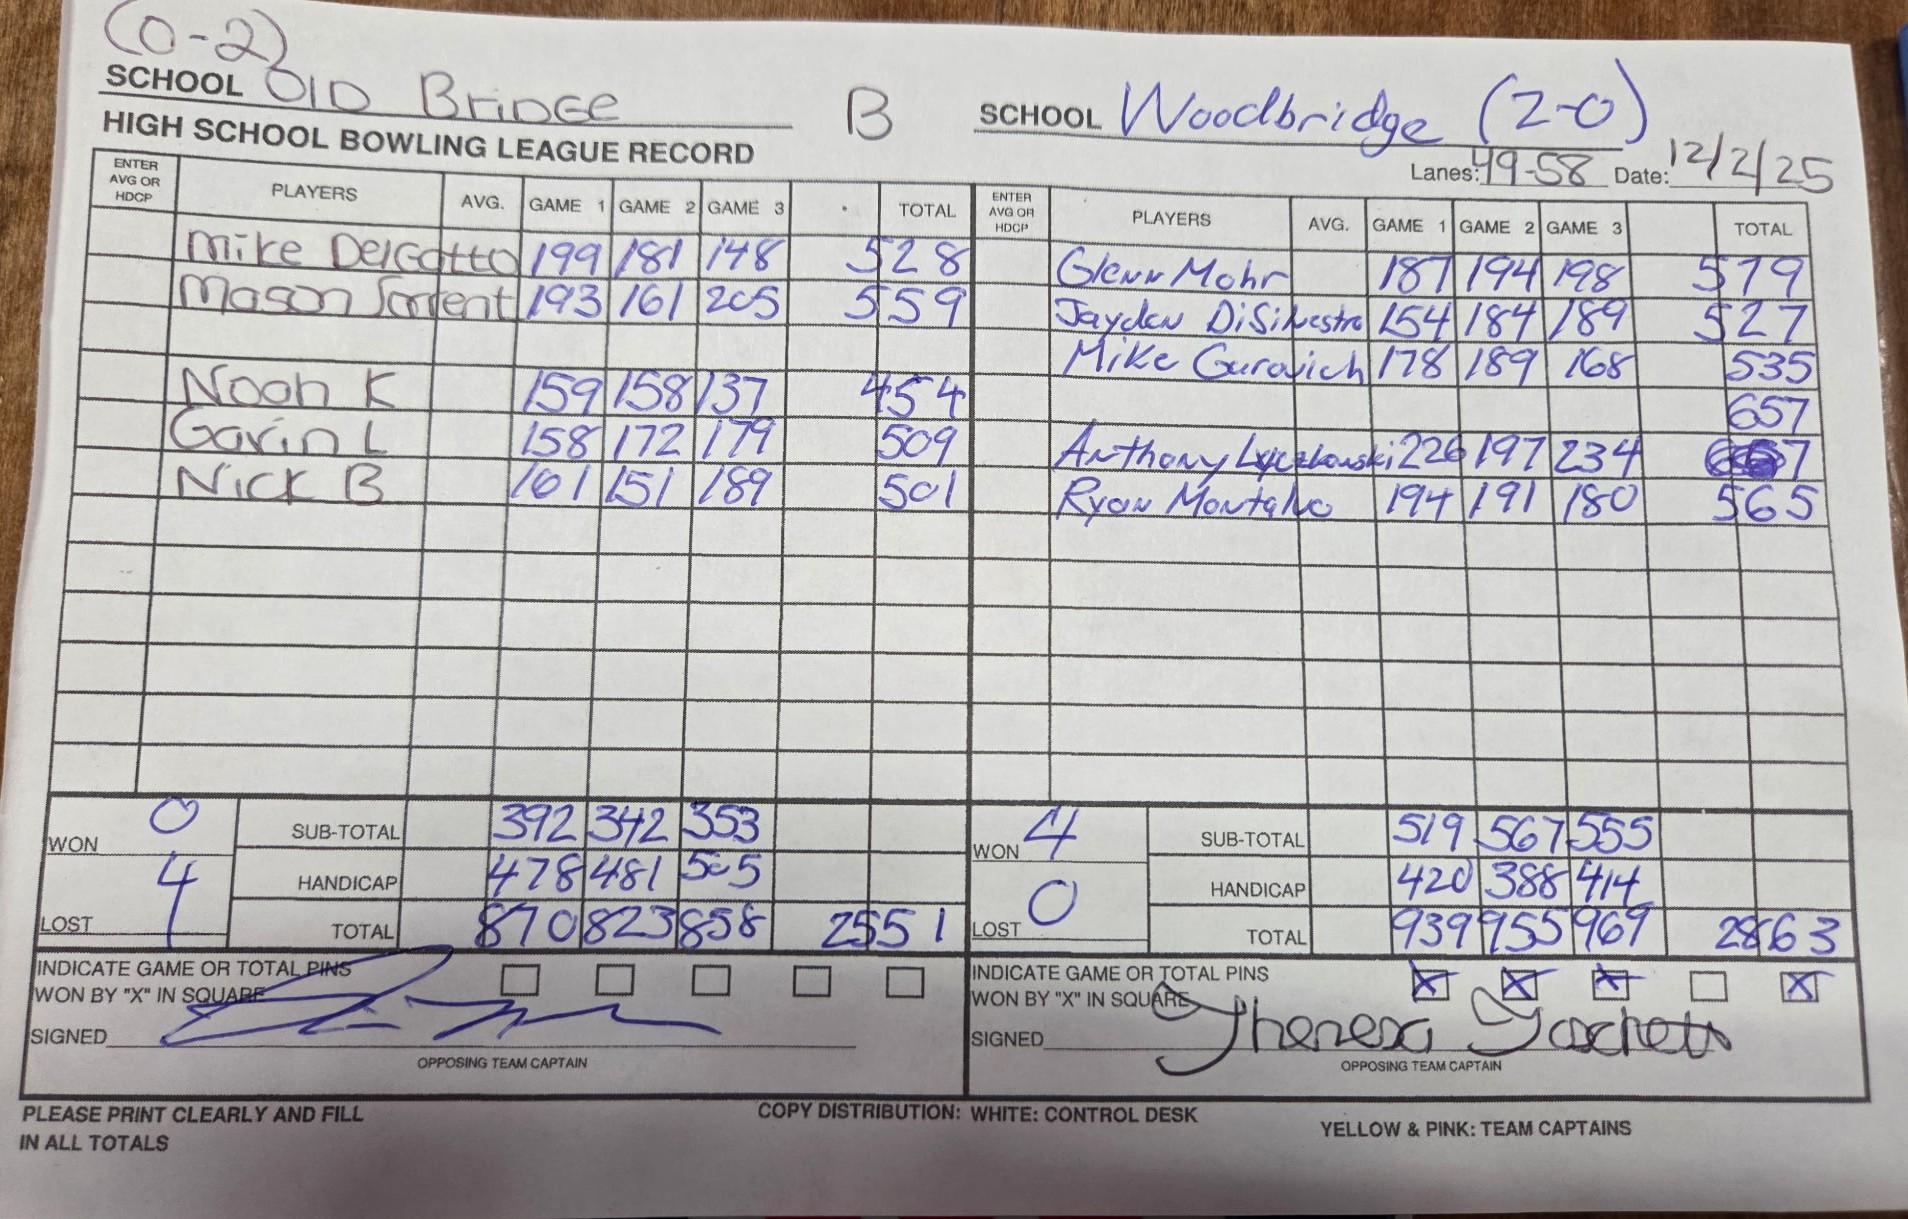 (0-2)
SCHOOL Old Bridge B SCHOOL Woodbridge (2-0)
HIGH SCHOOL BOWLING LEAGUE RECORD Lanes: 49-58 Date: 12/2/25
ENTER AVG OR HDCP PLAYERS AVG. GAME 1 GAME 2 GAME 3 TOTAL ENTER AVG OR HDCP PLAYERS AVG. GAME 1 GAME 2 GAME 3 TOTAL
Mike DelGatto 199 181 148 528 Glenn Mohr 187 194 198 579
Mason Sorrent 193 161 205 559 Jayden DiSilvestro 154 184 189 527
Mike Gurovich 178 189 168 535
Noah K 159 158 137 454 657
Gavin L 158 172 179 509 Anthony 226 197 234
Nick B 161 151 189 501 Ryan Montalvo 194 191 180 565
WON 0 SUB-TOTAL 392 342 353 WON 4 SUB-TOTAL 519 567 555
HANDICAP 478 481 505 HANDICAP 420 388 414
LOST 4 TOTAL 870 823 858 2551 LOST 0 TOTAL 939 955 969 2863
INDICATE GAME OR TOTAL PINS WON BY "X" IN SQUARE INDICATE GAME OR TOTAL PINS WON BY "X" IN SQUARE X X X X
SIGNED SIGNED Theresa
OPPOSING TEAM CAPTAIN OPPOSING TEAM CAPTAIN
PLEASE PRINT CLEARLY AND FILL IN ALL TOTALS COPY DISTRIBUTION: WHITE: CONTROL DESK YELLOW & PINK: TEAM CAPTAINS